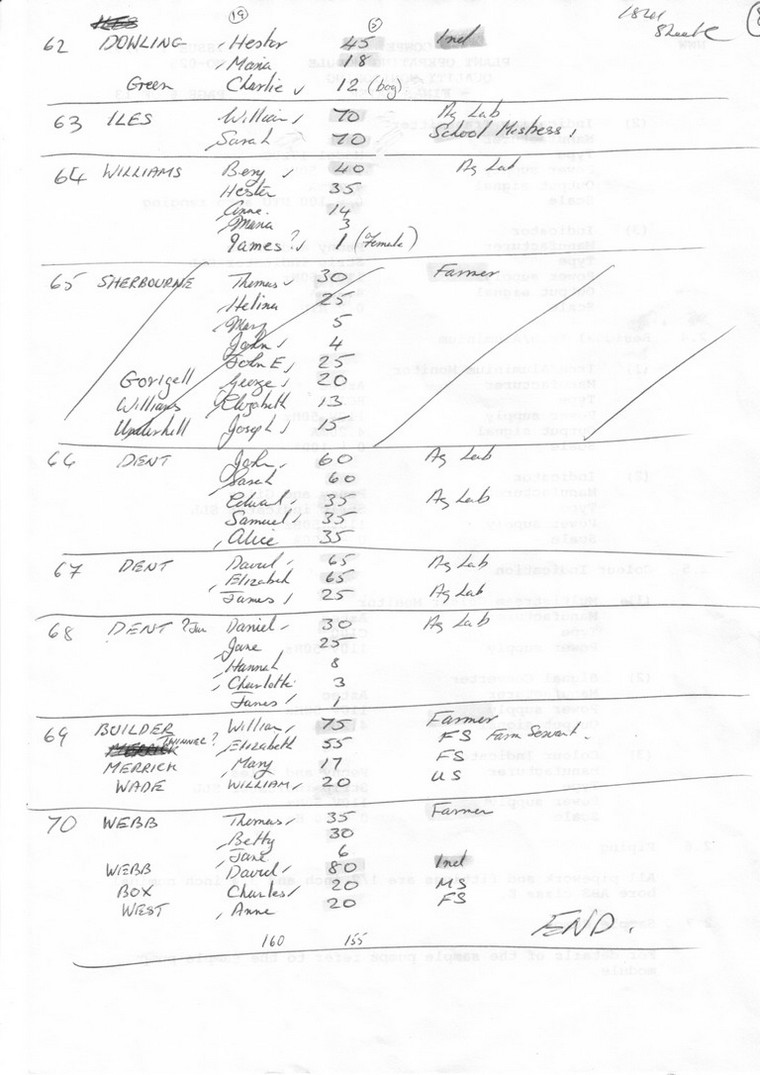 (19) (5)
62 DOWLING Hester 45 Ind
Maria 18
Green Charlie 12 (boy)
63 ILES William 70 Ag Lab
Sarah 70 School Mistress
64 WILLIAMS Benj 40 Ag Lab
Hester 35
Anne 14
Maria 3
James? 1 (Female)
65 SHERBOURNE Thomas 30 Farmer
Helina 25
Mary 5
John 4
John E 25
George 20
Williams Elizabeth 13
Underhill Joseph 15
66 DENT John 60 Ag Lab
Sarah 60
Edward 35 Ag Lab
Samuel 35
Alice 35
67 DENT David 65 Ag Lab
Elizabeth 65 Ag Lab
James 25 Ag Lab
68 DENT ? Jun Daniel 30 Ag Lab
Jane 25
Hannah 8
Charlotte 3
James 1
69 BUILDER William 75 Farmer
Elizabeth 55 FS Farm Servant.
MERRICK Mary 17 FS
WADE WILLIAM 20 US
70 WEBB Thomas 35 Farmer
Betty 30
Jane 6
WEBB David 80 Ind
BOX Charles 20 MS
WEST Anne 20 FS
END.
160 155